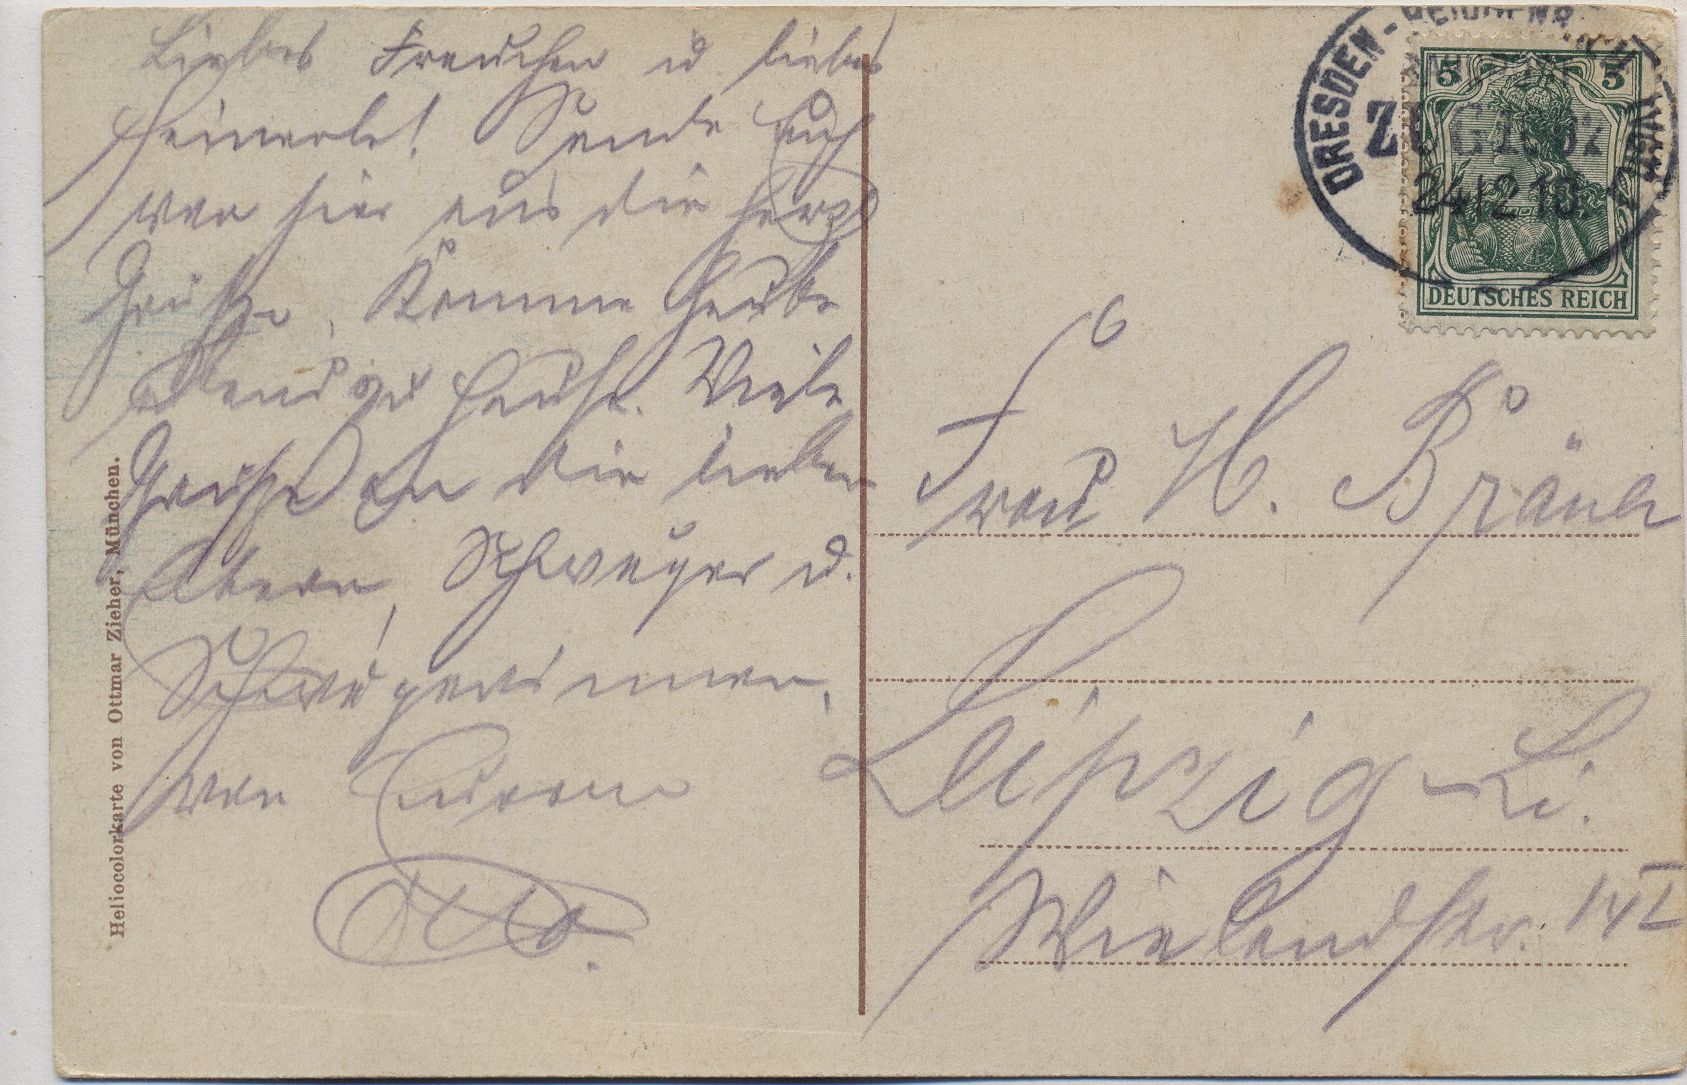 Liebes Frauchen u liebes
Heinerle! Sende Euch
von hier aus die herzl
Grüße, Komme heute
Abend zu Hause. Viele
Grüße an die lieben
Eltern, Schwager u.
Schwägerinnen,
von Eurem
Otto.
Heliocolorkarte von Ottmar Zieher, München.
DRESDEN-REICHENB
ZUG
24/2 10.
5 5
DEUTSCHES REICH
Frau H. Bräuer
Leipzig-Li.
Wielandstr. 14 I